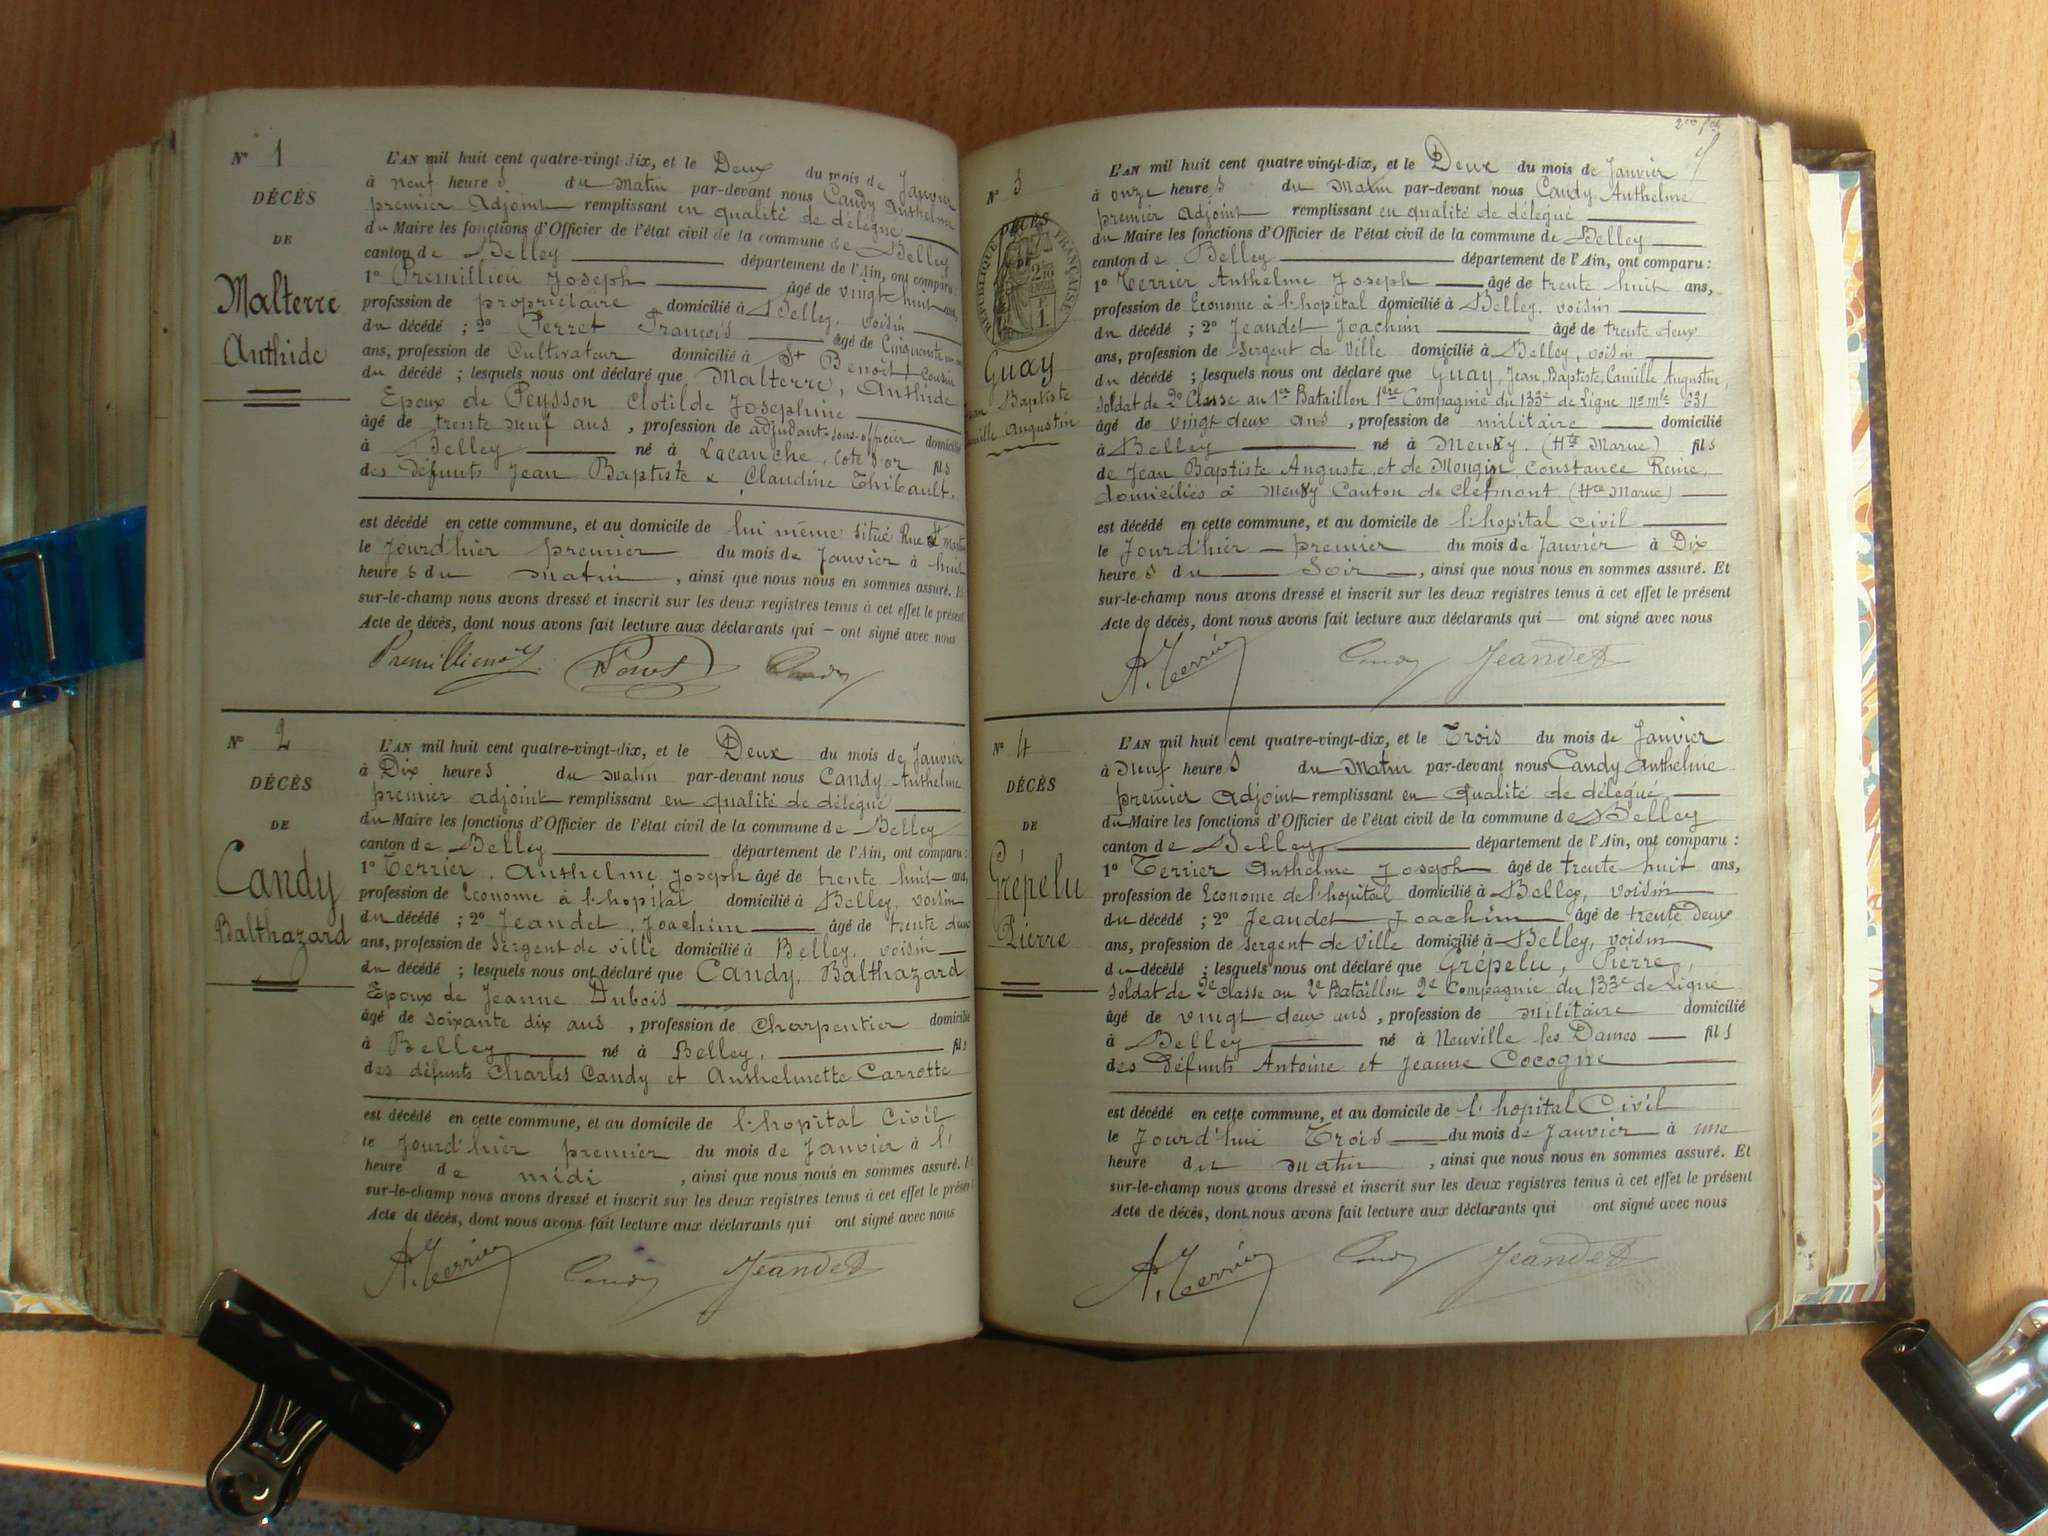 N° 1
DÉCÈS
DE
Malterre
Anthide
L'AN mil huit cent quatre-vingt-dix, et le Deux du mois de Janvier
à neuf heures du Matin par-devant nous Candy Anthelme
premier Adjoint remplissant en qualité de délégué
du Maire les fonctions d'Officier de l'état civil de la commune de Belley
canton de Belley département de l'Ain, ont comparu:
1° Premillieu Joseph âgé de vingt huit ans,
profession de propriétaire domicilié à Belley, voisin
du décédé; 2° Perret François âgé de Cinquante
ans, profession de Cultivateur domicilié à St Benoit, Cousin
du décédé; lesquels nous ont déclaré que Malterre, Anthide
Epoux de Peysson Clotilde Josephine
âgé de trente neuf ans, profession de adjudant-sous-officier domicilié
à Belley né à Lacanche, Cote d'or fils
des défunts Jean Baptiste & Claudine Thibault.
est décédé en cette commune, et au domicile de lui même situé Rue St Martin
le Jourd'hier premier du mois de Janvier à huit
heures du Matin, ainsi que nous nous en sommes assuré. Et
sur-le-champ nous avons dressé et inscrit sur les deux registres tenus à cet effet le présent
Acte de décès, dont nous avons fait lecture aux déclarants qui — ont signé avec nous
Candy
N° 2
DÉCÈS
DE
Candy
Balthazard
L'AN mil huit cent quatre-vingt-dix, et le Deux du mois de Janvier
à Dix heures du Matin par-devant nous Candy Anthelme
premier adjoint remplissant en qualité de délégué
du Maire les fonctions d'Officier de l'état civil de la commune de Belley
canton de Belley département de l'Ain, ont comparu:
1° Terrier, Anthelme Joseph âgé de trente huit ans,
profession de Econome à l'hopital domicilié à Belley, voisin
du décédé; 2° Jeandet, Joachim âgé de trente deux
ans, profession de Sergent de ville domicilié à Belley, voisin
du décédé; lesquels nous ont déclaré que Candy, Balthazard
Epoux de Jeanne Dubois
âgé de soixante dix ans, profession de Charpentier domicilié
à Belley né à Belley, fils
des défunts Charles Candy et Anthelmette Carrotte
est décédé en cette commune, et au domicile de l'hopital Civil
le Jourd'hier premier du mois de Janvier à l'
heure de midi, ainsi que nous nous en sommes assuré. Et
sur-le-champ nous avons dressé et inscrit sur les deux registres tenus à cet effet le présent
Acte de décès, dont nous avons fait lecture aux déclarants qui ont signé avec nous
A. Terrier Candy Jeandet
N° 3
DÉCÈS
RÉPUBLIQUE FRANÇAISE
Guay
Jean Baptiste
Camille Augustin
L'AN mil huit cent quatre vingt-dix, et le Deux du mois de Janvier
à onze heures du Matin par-devant nous Candy Anthelme
premier adjoint remplissant en qualité de délégué
du Maire les fonctions d'Officier de l'état civil de la commune de Belley
canton de Belley département de l'Ain, ont comparu:
1° Terrier Anthelme Joseph âgé de trente huit ans,
profession de Econome à l'hopital domicilié à Belley, voisin
du décédé; 2° Jeandet Joachim âgé de trente deux
ans, profession de Sergent de Ville domicilié à Belley, voisin
du décédé; lesquels nous ont déclaré que Guay, Jean, Baptiste, Camille Augustin,
Soldat de 2e Classe au 1er Bataillon 1ère Compagnie du 133e de Ligne no mle 631
âgé de vingt deux ans, profession de militaire domicilié
à Belley né à Meuxy. (Hte Marne) fils
de Jean Baptiste Auguste, et de Mougin Constance Reine,
domiciliés à Meuxy Canton de Clefmont (Hte Marne)
est décédé en cette commune, et au domicile de l'hopital civil
le Jourd'hier — premier du mois de Janvier à Dix
heures du Soir, ainsi que nous nous en sommes assuré. Et
sur-le-champ nous avons dressé et inscrit sur les deux registres tenus à cet effet le présent
Acte de décès, dont nous avons fait lecture aux déclarants qui — ont signé avec nous
A. Terrier Candy Jeandet
N° 4
DÉCÈS
DE
Grépelu
Pierre
L'AN mil huit cent quatre-vingt-dix, et le Trois du mois de Janvier
à neuf heures du Matin par-devant nous Candy Anthelme
premier Adjoint remplissant en qualité de délégué
du Maire les fonctions d'Officier de l'état civil de la commune de Belley
canton de Belley département de l'Ain, ont comparu:
1° Terrier Anthelme Joseph âgé de trente huit ans,
profession de Econome de l'hopital domicilié à Belley, voisin
du décédé; 2° Jeandet Joachim âgé de trente Deux
ans, profession de Sergent de Ville domicilié à Belley, voisin
du décédé; lesquels nous ont déclaré que Grépelu, Pierre,
Soldat de 2e Classe au 2e Bataillon 2e Compagnie du 133e de Ligne
âgé de vingt deux ans, profession de militaire domicilié
à Belley né à Neuville les Dames fils
des défunts Antoine et Jeanne Cocogne
est décédé en cette commune, et au domicile de l'hopital Civil
le Jourd'hui Trois du mois de Janvier à une
heure du matin, ainsi que nous nous en sommes assuré. Et
sur-le-champ nous avons dressé et inscrit sur les deux registres tenus à cet effet le présent
Acte de décès, dont nous avons fait lecture aux déclarants qui ont signé avec nous
A. Terrier Candy Jeandet